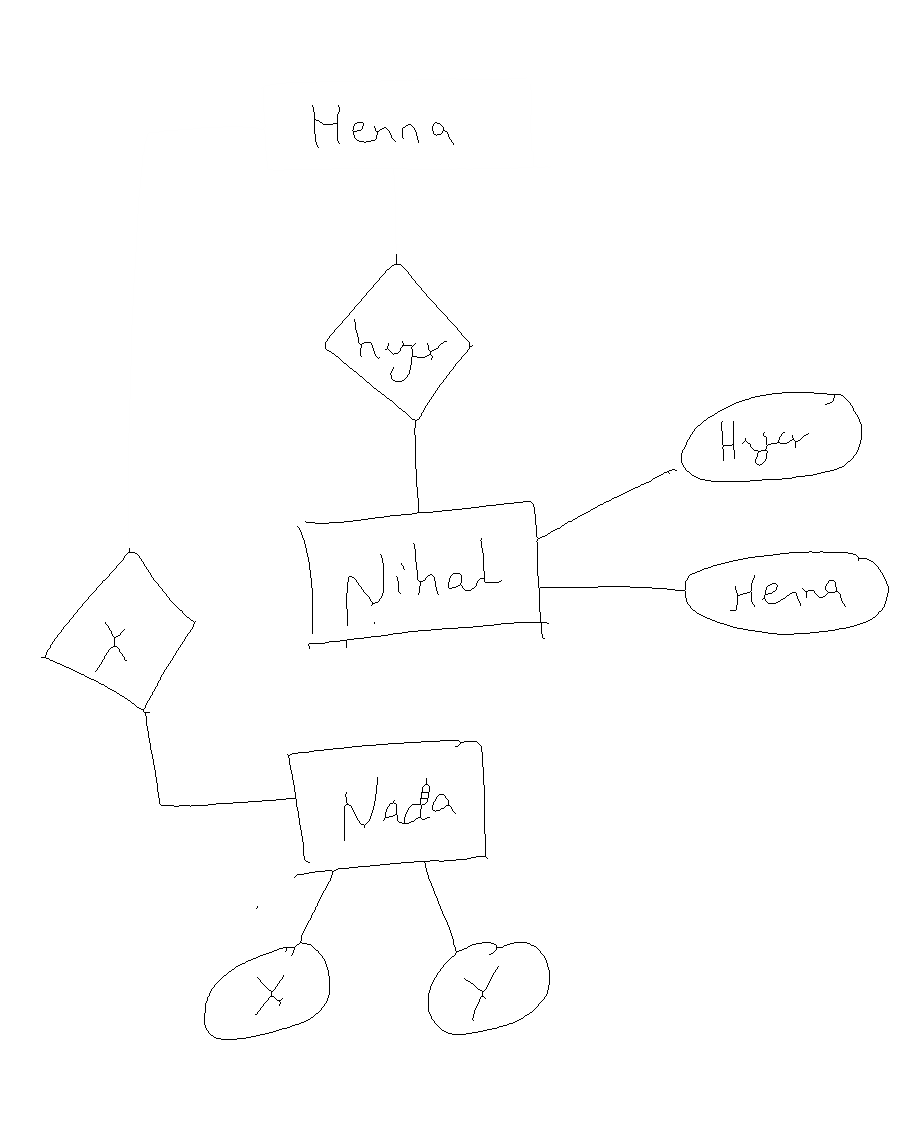 Henna
hyer
Hyer
Nihal
Henna
X
Nada
X
Y